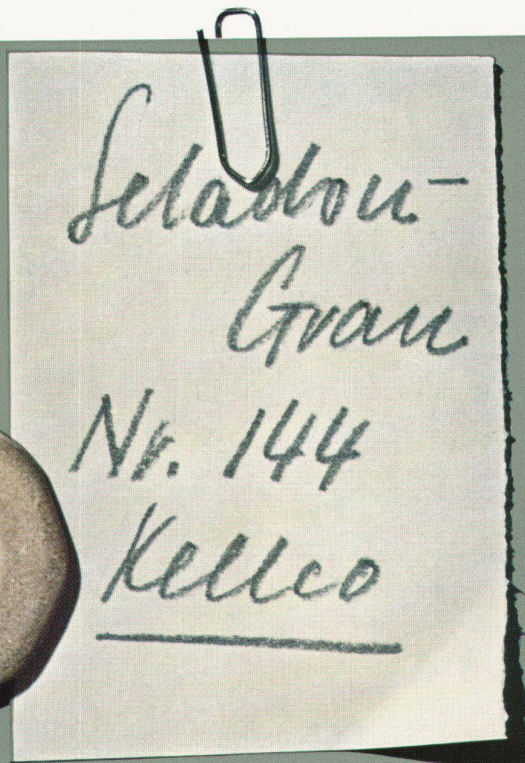 Seladon-
Grau
Nr. 144
Kellco